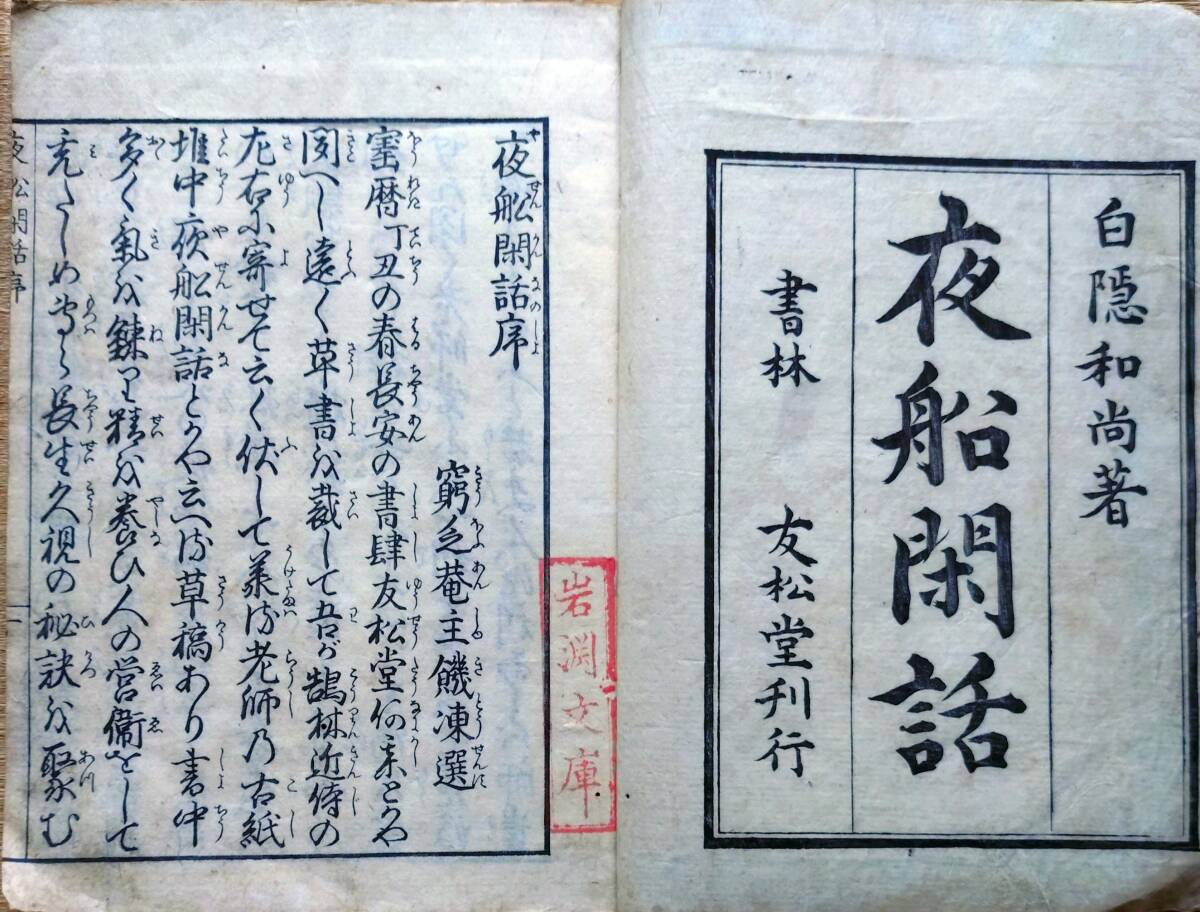 白隠和尚著
夜船閑話
書林 友松堂刊行
岩渕文庫
夜舩閑話序
窮乏菴主饑凍選
寳暦丁丑の春長安の書肆友松堂何某とかや
聞へし遠く草書を裁して吾が鵠林近侍の
左右に寄せて云く伏して承る老師乃古紙
堆中夜舩閑話とかや云へる草稿あり書中
多く氣を錬り精を養ひ人の営衞をして
充たしめ専ら長生久視の秘訣を聚む
夜舩閑話序 一